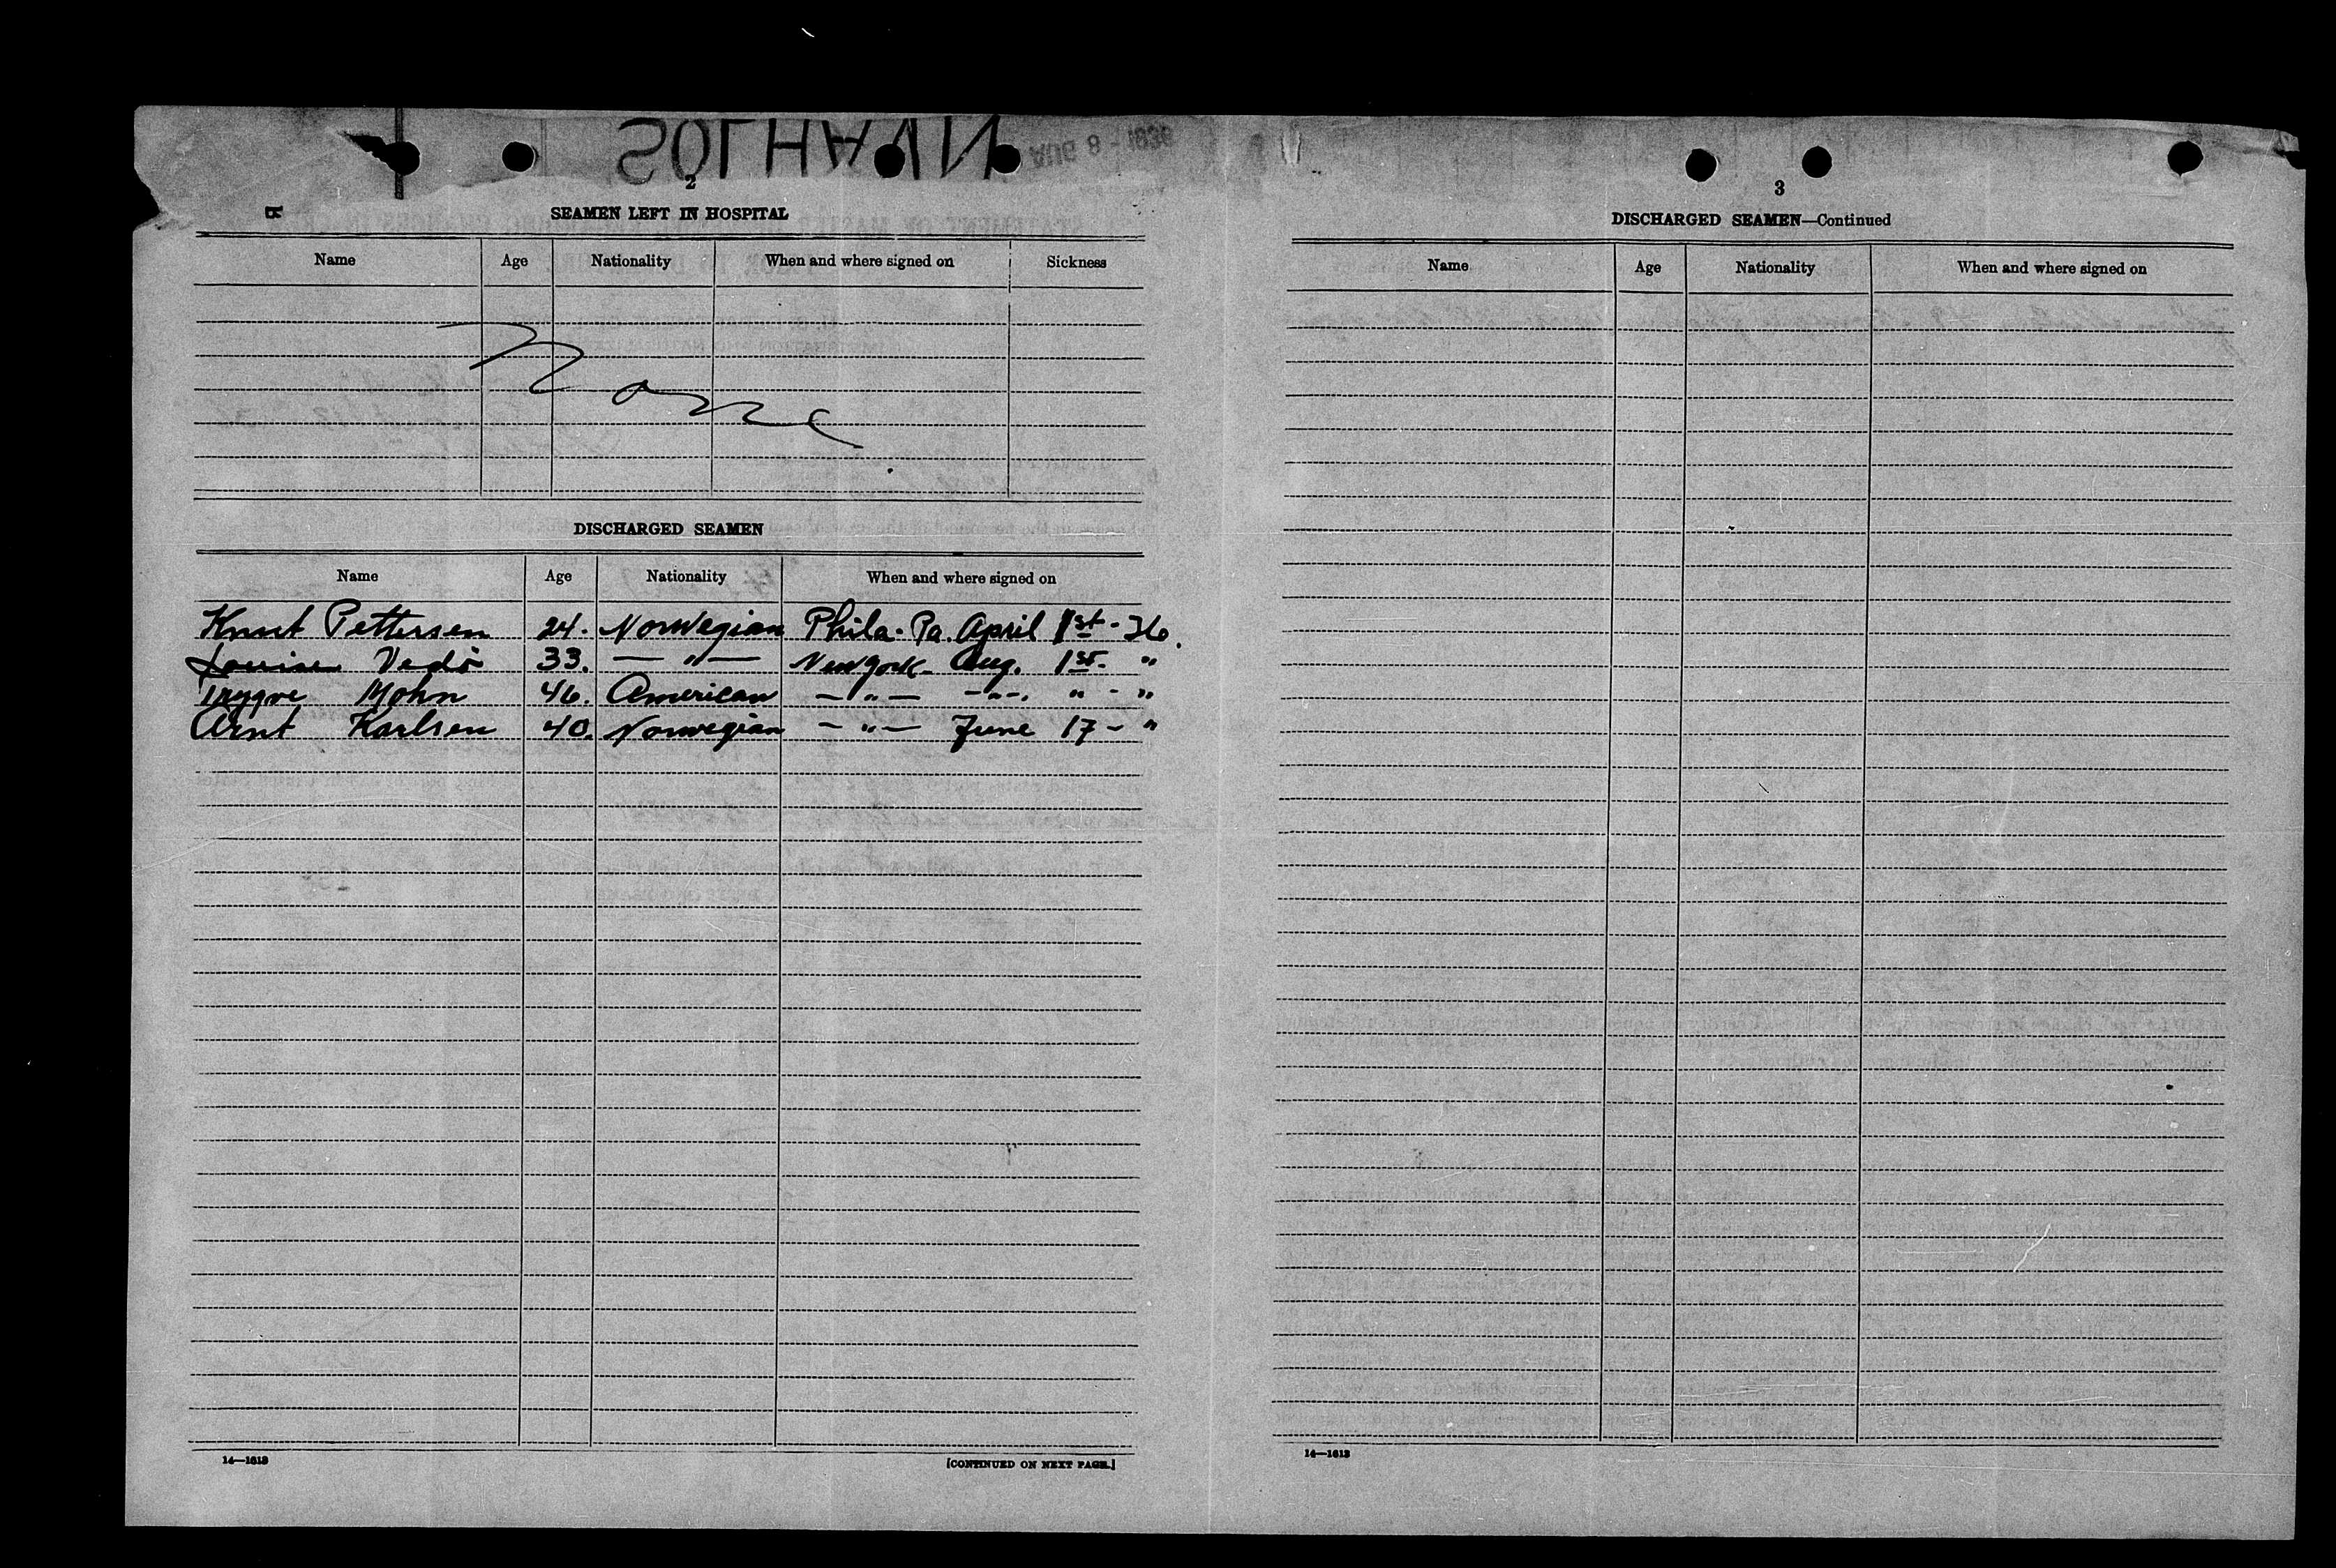 SOLHAVN AUG 8 - 1936
2
SEAMEN LEFT IN HOSPITAL
Name Age Nationality When and where signed on Sickness
None.
DISCHARGED SEAMEN
Name Age Nationality When and where signed on
Knut Pettersen 24. Norwegian Phila. Pa. April 1st - 36.
Vedø 33. — " — New York - Aug. 1st - "
Trygve Mohn 46. American — " — - " -. " - "
Arnt Karlsen 40. Norwegian — " — June 17 - "
14—1613 [CONTINUED ON NEXT PAGE.]
3
DISCHARGED SEAMEN—Continued
Name Age Nationality When and where signed on
14—1613